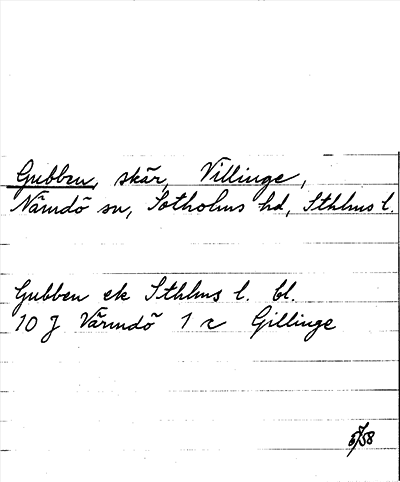 Gubben, skär, Villinge,
Nämdö sn, Sotholms hd, Sthlms l.
Gubben ek Sthlms l. bl.
10 J Värmdö 1 r Gillinge